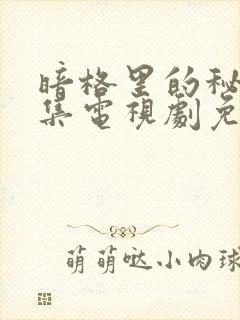 暗格里的秘
集電視劇免
萌萌哒小肉球